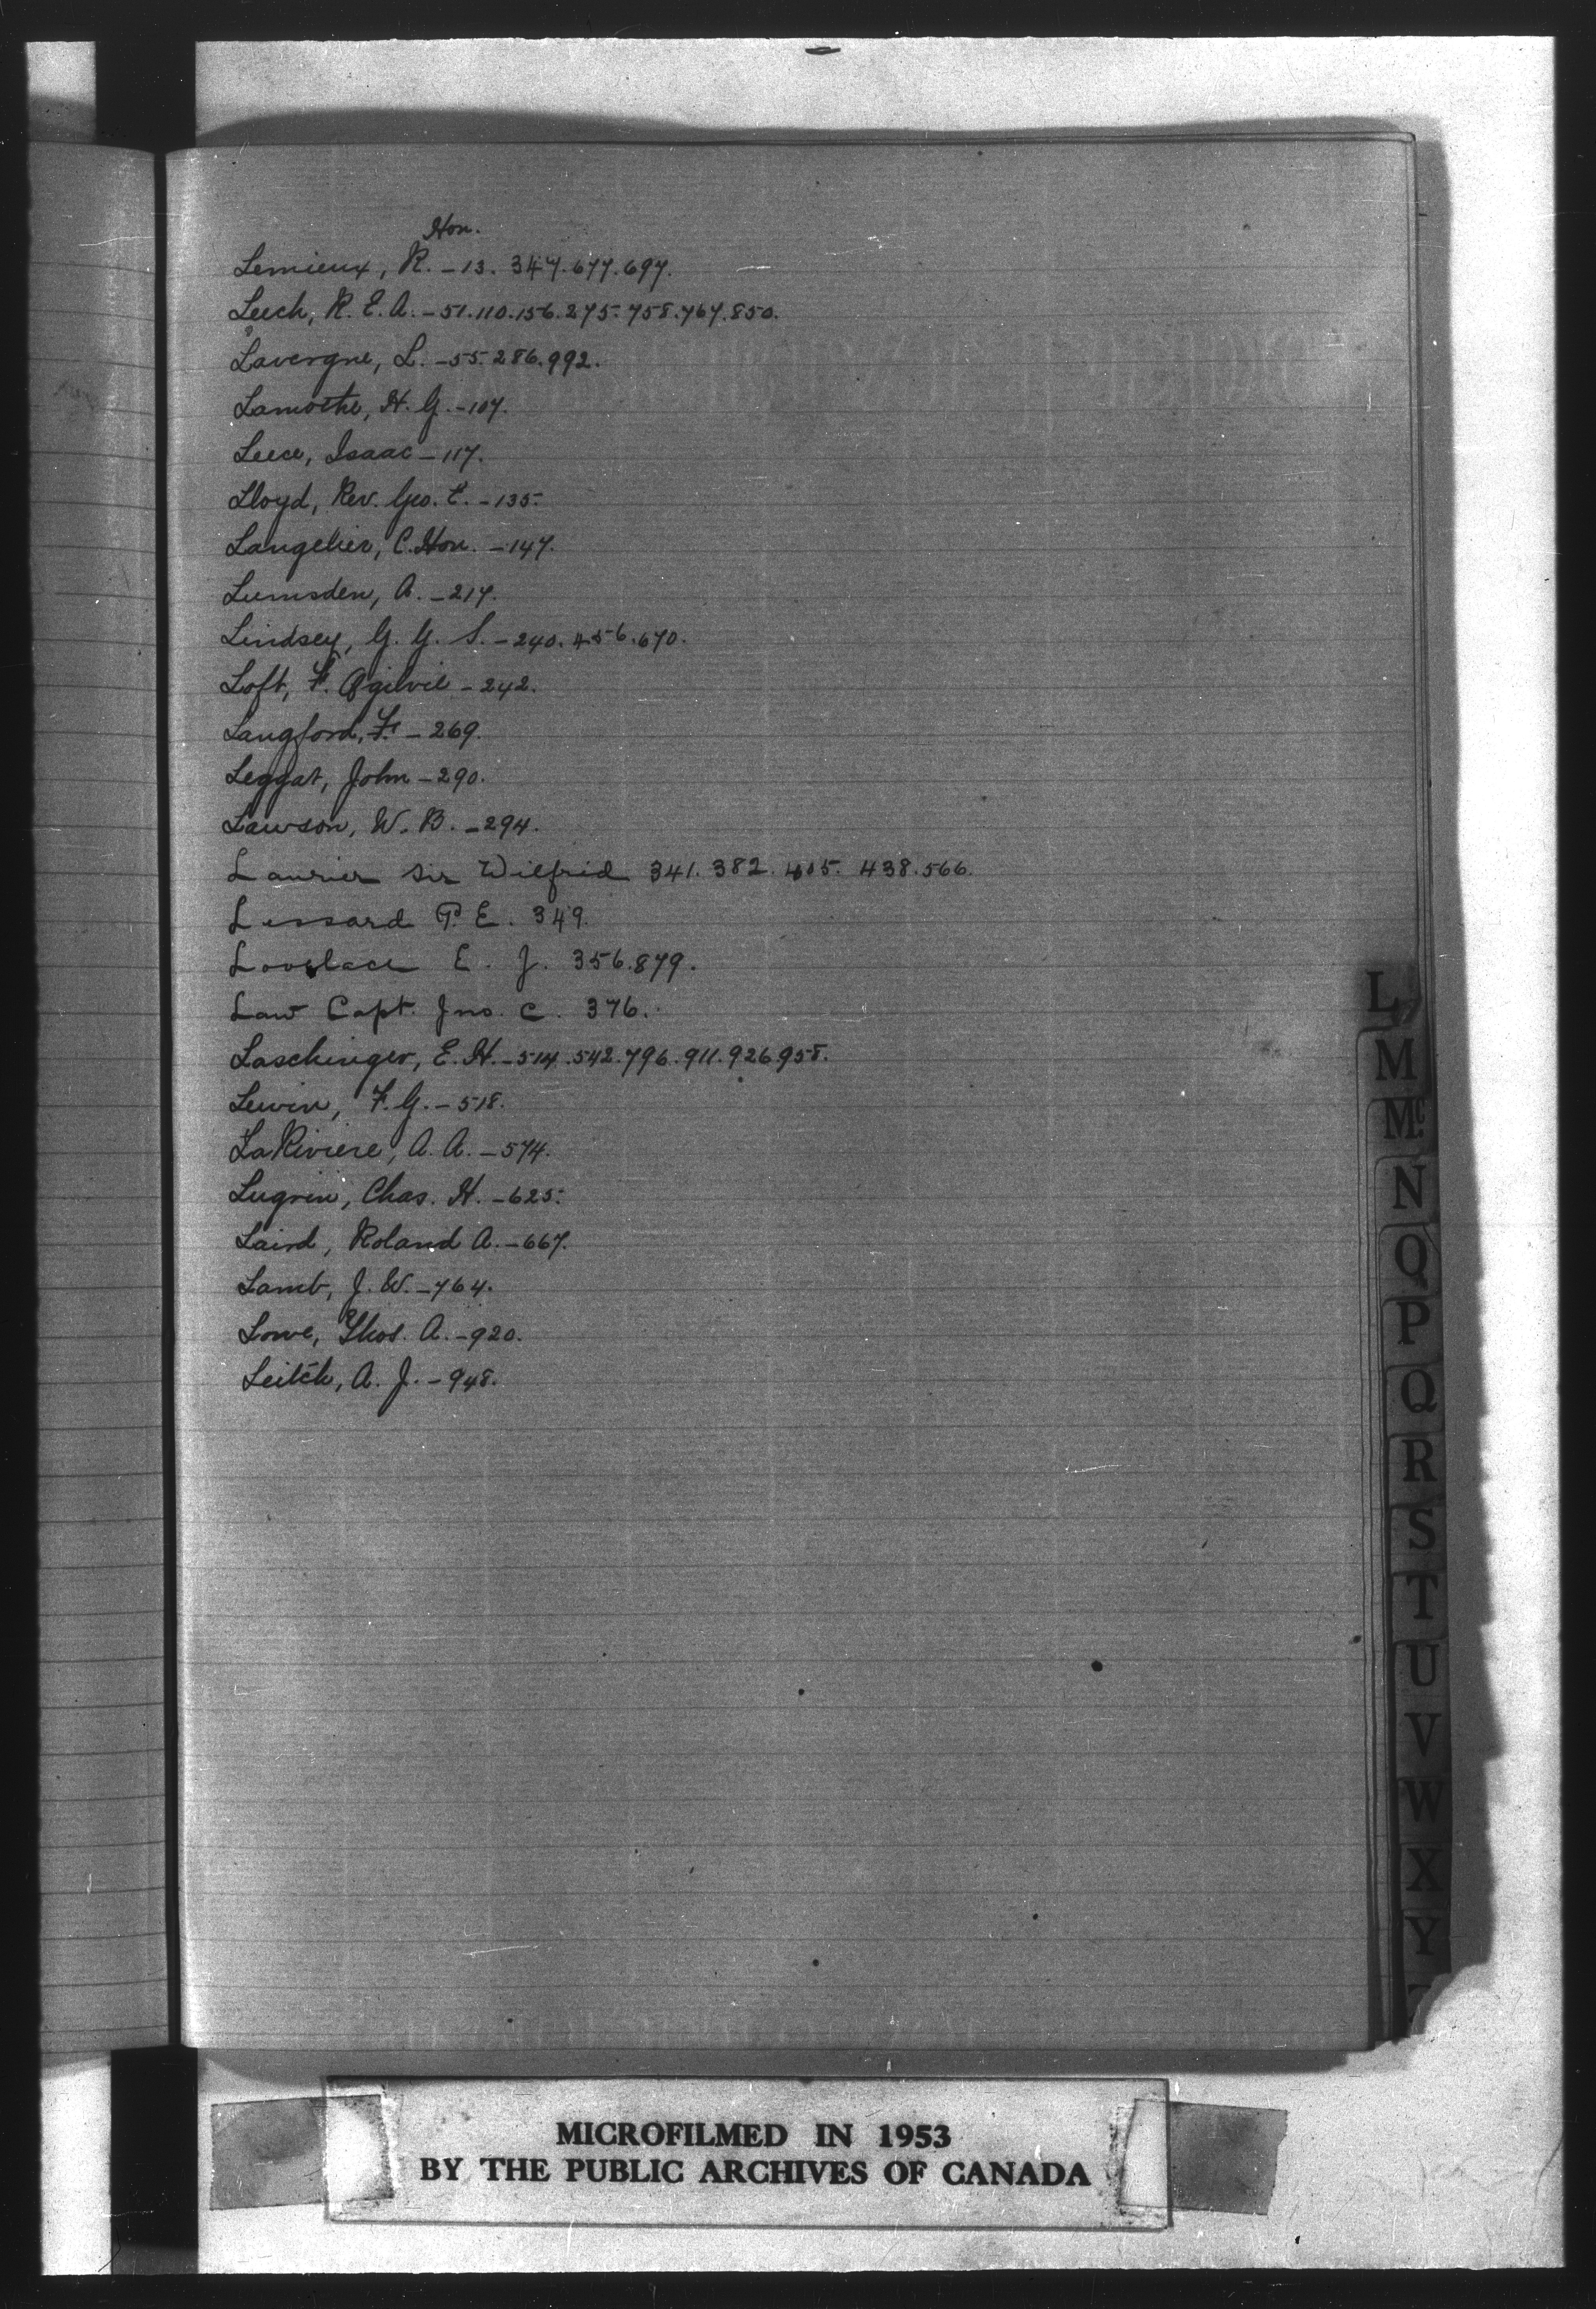 Hon.
Lemieux, R. - 13. 347. 677. 697.
Leech, R. E. A. - 51. 110. 156. 275. 758. 767. 850.
Lavergne, L. - 55. 286. 992.
Lamothe, H. G. - 107.
Leece, Isaac - 117.
Lloyd, Rev. Geo. E. - 135.
Langelier, C. Hon. - 147.
Lumsden, A. - 217.
Lindsey, G. G. S. - 240. 456. 670.
Loft, F. Ogilvie - 242.
Langford, F. - 269.
Leggat, John - 290.
Lawson, W. B. - 294.
Laurier Sir Wilfrid 341. 382. 405. 438. 566.
Lessard P. E. 349.
Lovelace E. J. 356. 879.
Law Capt. Jno. C. 376.
Laschinger, E. H. - 514. 542. 796. 911. 926. 958.
Lewin, F. G. - 518.
LaRiviere, A. A. - 574.
Lugrin, Chas. H. - 625.
Laird, Roland A. - 667.
Lamb, J. W. - 764.
Lowe, Thos. A. - 920.
Leitch, A. J. - 948.
L
M
Mc
N
O
P
Q
R
S
T
U
V
W
X
Y
MICROFILMED IN 1953
BY THE PUBLIC ARCHIVES OF CANADA